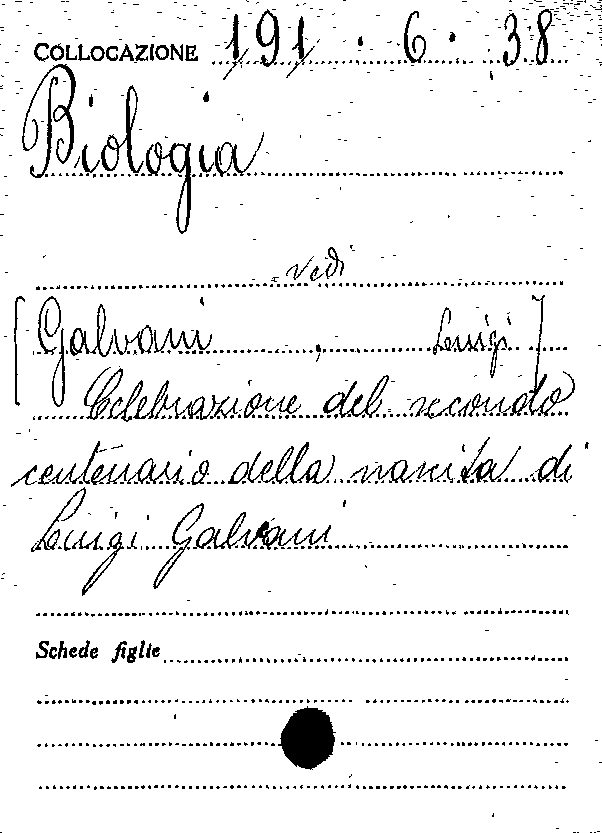 COLLOCAZIONE 191 . 6 . 38
Biologia
vedi
[Galvani , Luigi]
Celebrazione del secondo
centenario della nascita di
Luigi Galvani
Schede figlie